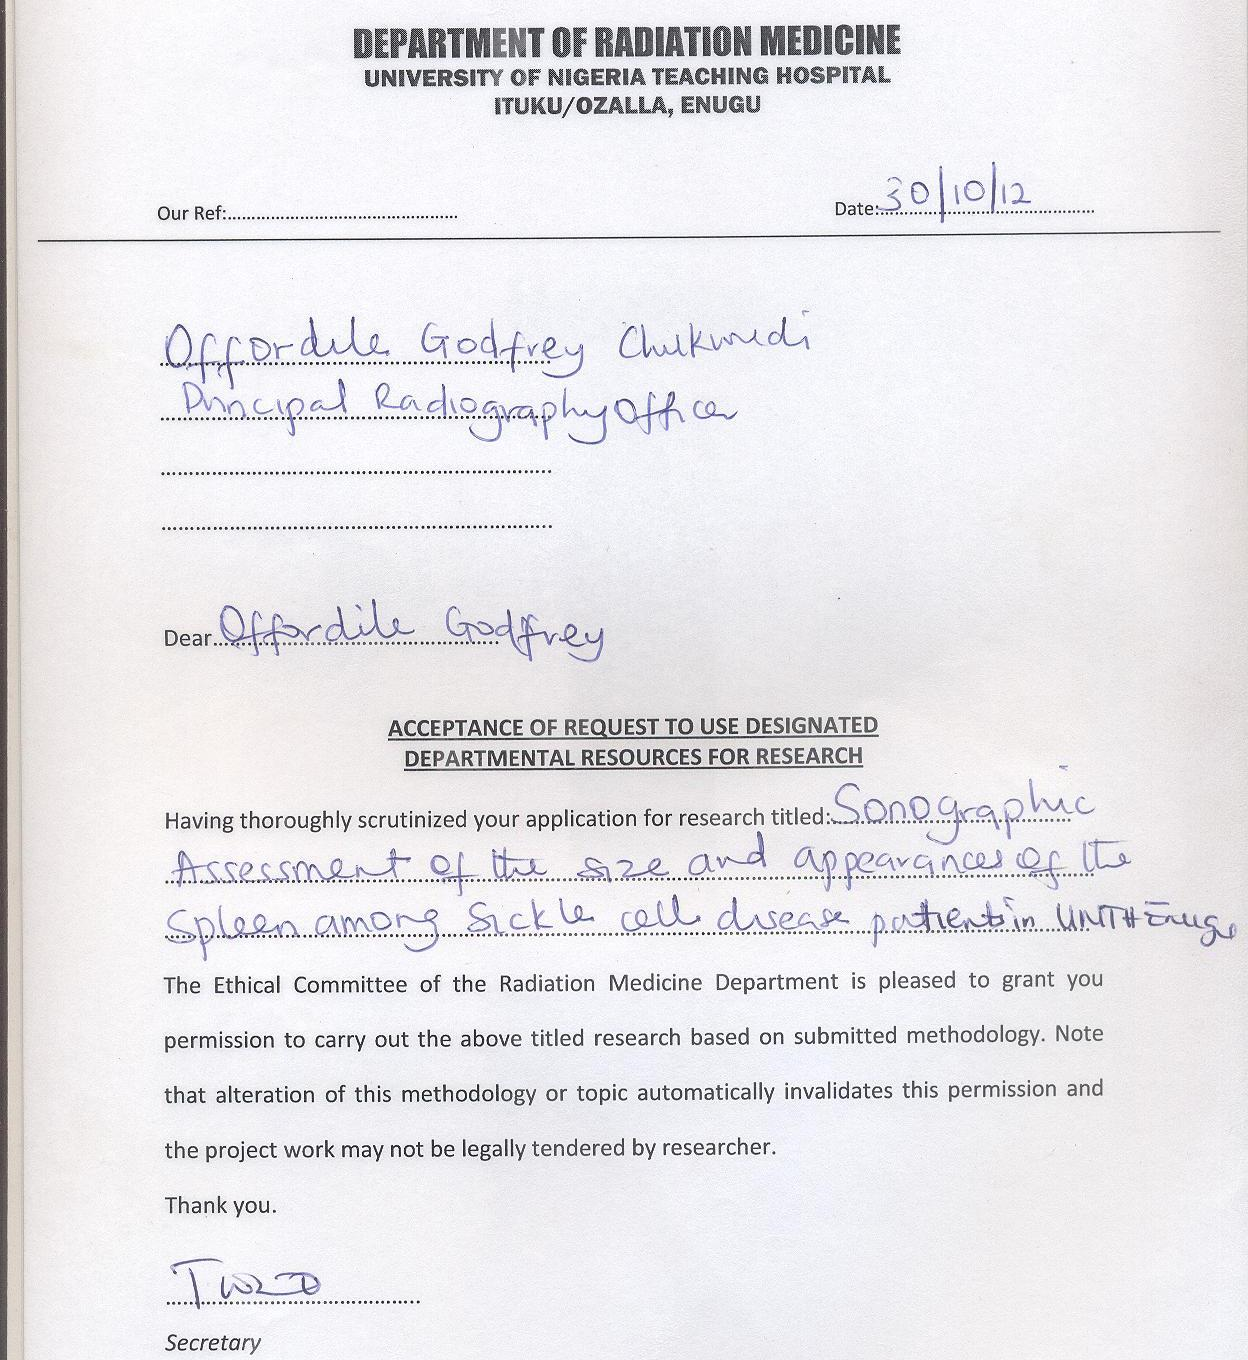 DEPARTMENT OF RADIATION MEDICINE
UNIVERSITY OF NIGERIA TEACHING HOSPITAL
ITUKU/OZALLA, ENUGU
Our Ref:............................................... Date: 30/10/12
Offordile Godfrey Chukwudi
Principal Radiography Officer
Dear Offordile Godfrey
ACCEPTANCE OF REQUEST TO USE DESIGNATED
DEPARTMENTAL RESOURCES FOR RESEARCH
Having thoroughly scrutinized your application for research titled: Sonographic
Assessment of the size and appearances of the
Spleen among Sickle cell disease patients in UNTH Enugu
The Ethical Committee of the Radiation Medicine Department is pleased to grant you
permission to carry out the above titled research based on submitted methodology. Note
that alteration of this methodology or topic automatically invalidates this permission and
the project work may not be legally tendered by researcher.
Thank you.
Secretary